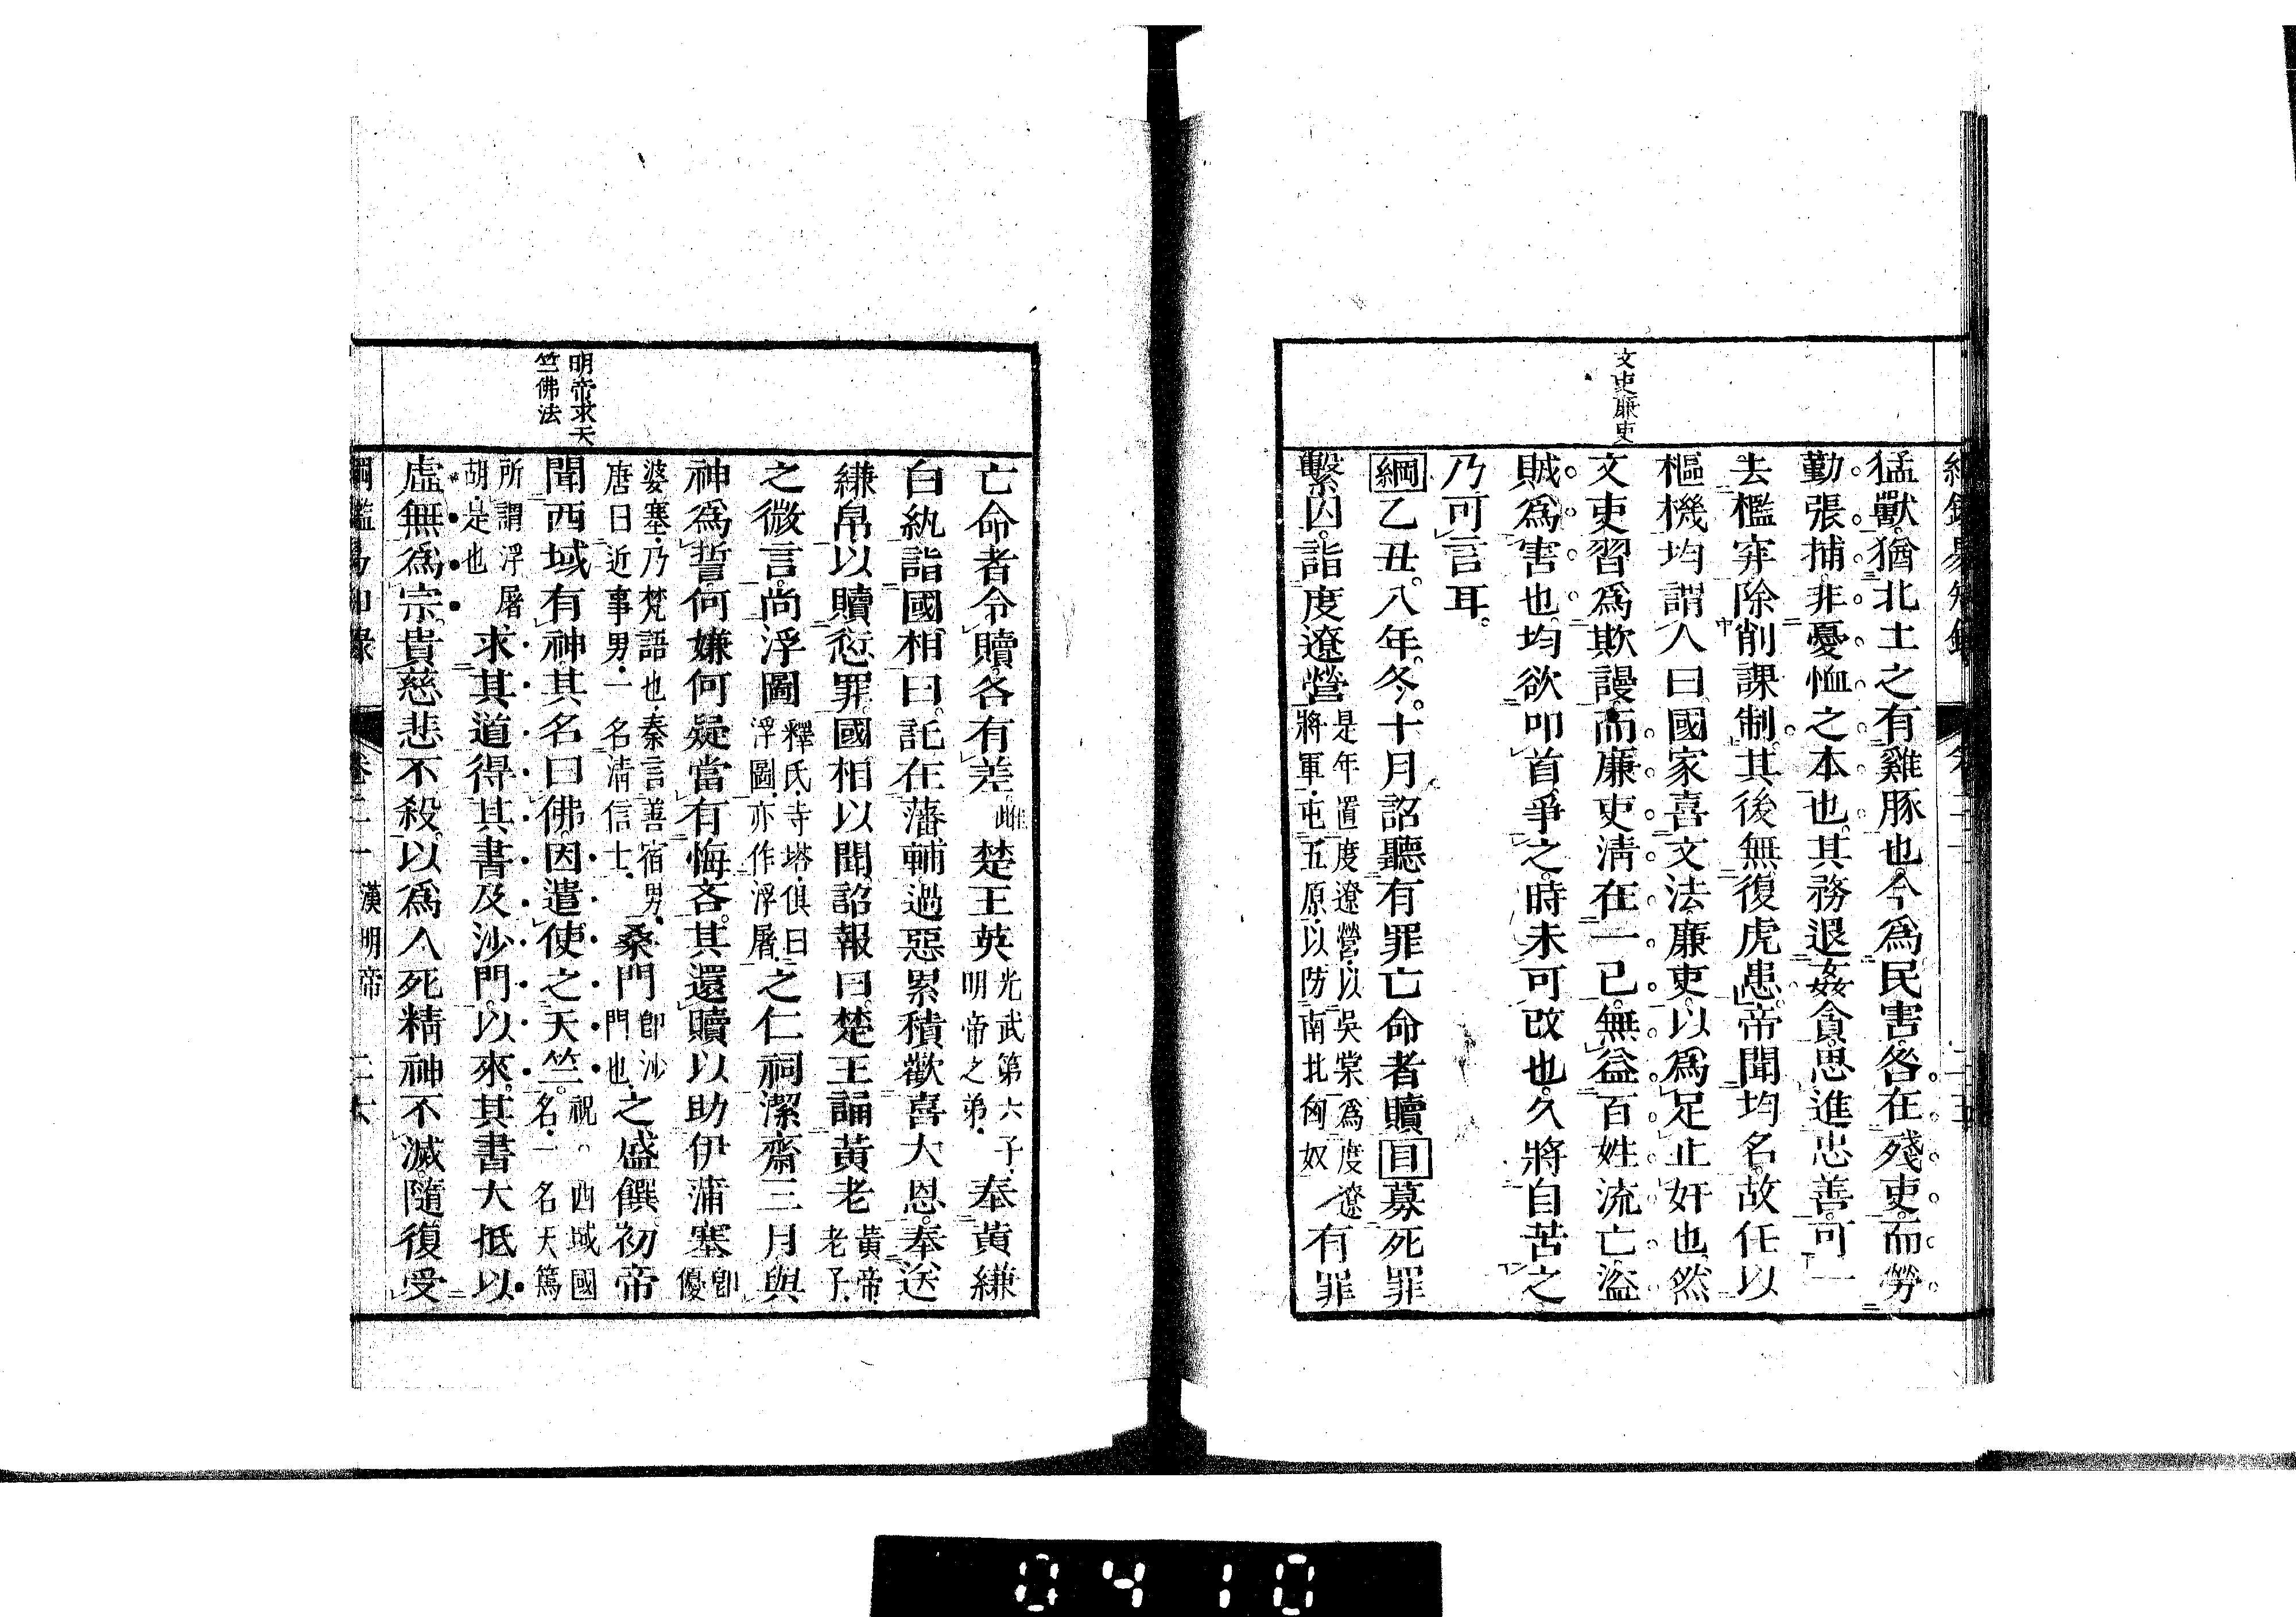 文吏廉吏
猛獸。猶北土之有雞豚也。今為民害。咎在殘吏。而勞
勤張捕。非憂恤之本也。其務退姦貪。思進忠善。可一
去檻穽。除削課制。其後無復虎患。帝聞均名。故任以
樞機。均謂人曰。國家喜文法廉吏。以為足止奸也。然
文吏習為欺謾。而廉吏清在一已。無益百姓流亡。盜
賊為害也。均欲叩首爭之。時未可改也。久將自苦之。
乃可言耳。
綱乙丑。八年。冬。十月。詔聽有罪亡命者贖。目募死罪
繫囚。詣度遼營是年置度遼營。以吳棠為度遼將軍。屯五原。以防南北匈奴有罪
明帝求天
竺佛法
亡命者令贖。各有差。楚王英光武第六子。明帝之弟。奉黃縑
白紈詣國相曰。託在藩輔。過惡累積。歡喜大恩。奉送
縑帛以贖愆罪。國相以聞。詔報曰。楚王誦黃老黃帝。老子。
之微言。尚浮圖釋氏寺塔。俱曰浮圖。亦作浮屠。之仁祠。潔齋三月。與
神為誓。何嫌何疑。當有悔吝。其還贖以助伊蒲塞即優
婆塞。乃梵語也。秦言善宿男。唐曰近事男。一名清信士。桑門即沙門也。之盛饌。初帝
聞西域有神。其名曰佛。因遣使之天竺。祝。西域國名。一名天篤
所謂浮屠胡。是也求其道。得其書及沙門。以來。其書大抵以
虛無為宗。貴慈悲不殺。以為人死精神不滅。隨復受
綱鑑易知錄 卷二十一 漢明帝 二六
0410